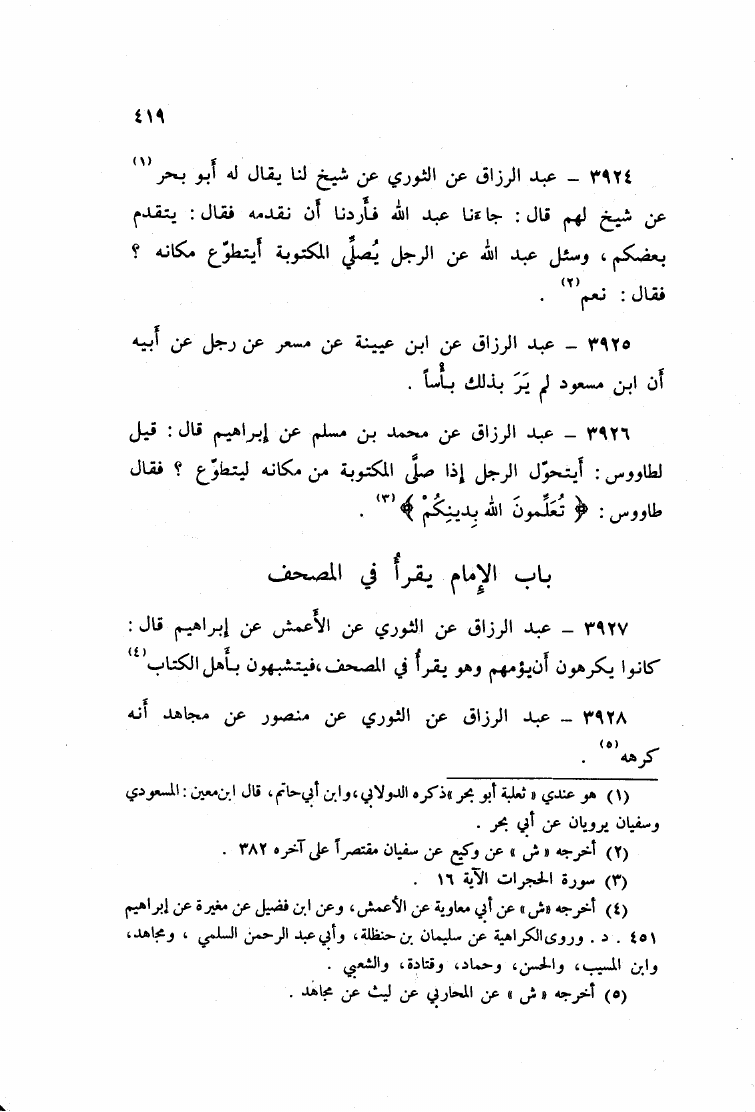 ٤١٩
٣٩٢٤ – عبد الرزاق عن الثوري عن شيخ لنا يقال له أبو بحر (١)
عن شيخ لهم قال : جاءنا عبد الله فأردنا أن نقدمه فقال : يتقدم
بعضكم ، وسئل عبد الله عن الرجل يُصلِّي المكتوبة أيتطوّع مكانه ؟
فقال : نعم (٢) .
٣٩٢٥ – عبد الرزاق عن ابن عيينة عن مسعر عن رجل عن أبيه
أن ابن مسعود لم يَرَ بذلك بأْساً .
٣٩٢٦ – عبد الرزاق عن محمد بن مسلم عن إبراهيم قال : قيل
لطاووس : أيتحوّل الرجل إذا صلَّى المكتوبة من مكانه ليتطوّع ؟ فقال
طاووس : ﴿ تُعَلِّمونَ الله بِدينِكُمْ ﴾ (٣) .
باب الإمام يقرأُ في المصحف
٣٩٢٧ – عبد الرزاق عن الثوري عن الأعمش عن إبراهيم قال :
كانوا يكرهون أن يؤمهم وهو يقرأُ في المصحف ، فيتشبهون بأهل الكتاب (٤)
٣٩٢٨ – عبد الرزاق عن الثوري عن منصور عن مجاهد أنه
كرهه (٥) .
(١) هو عندي « ثعلبة أبو بحر » ذكره الدولابي ، وابن أبي حاتم ، قال ابن معين : المسعودي
وسفيان يرويان عن أبي بحر .
(٢) أخرجه « ش » عن وكيع عن سفيان مقتصراً على آخره ٣٨٢ .
(٣) سورة الحجرات الآية ١٦ .
(٤) أخرجه « ش » عن أبي معاوية عن الأعمش ، وعن ابن فضيل عن مغيرة عن إبراهيم
٤٥١ . د . وروى الكراهية عن سليمان بن حنظلة ، وأبي عبد الرحمن السلمي ، ومجاهد ،
وابن المسيب ، والحسن ، وحماد ، وقتادة ، والشعبي .
(٥) أخرجه « ش » عن المحاربي عن ليث عن مجاهد .